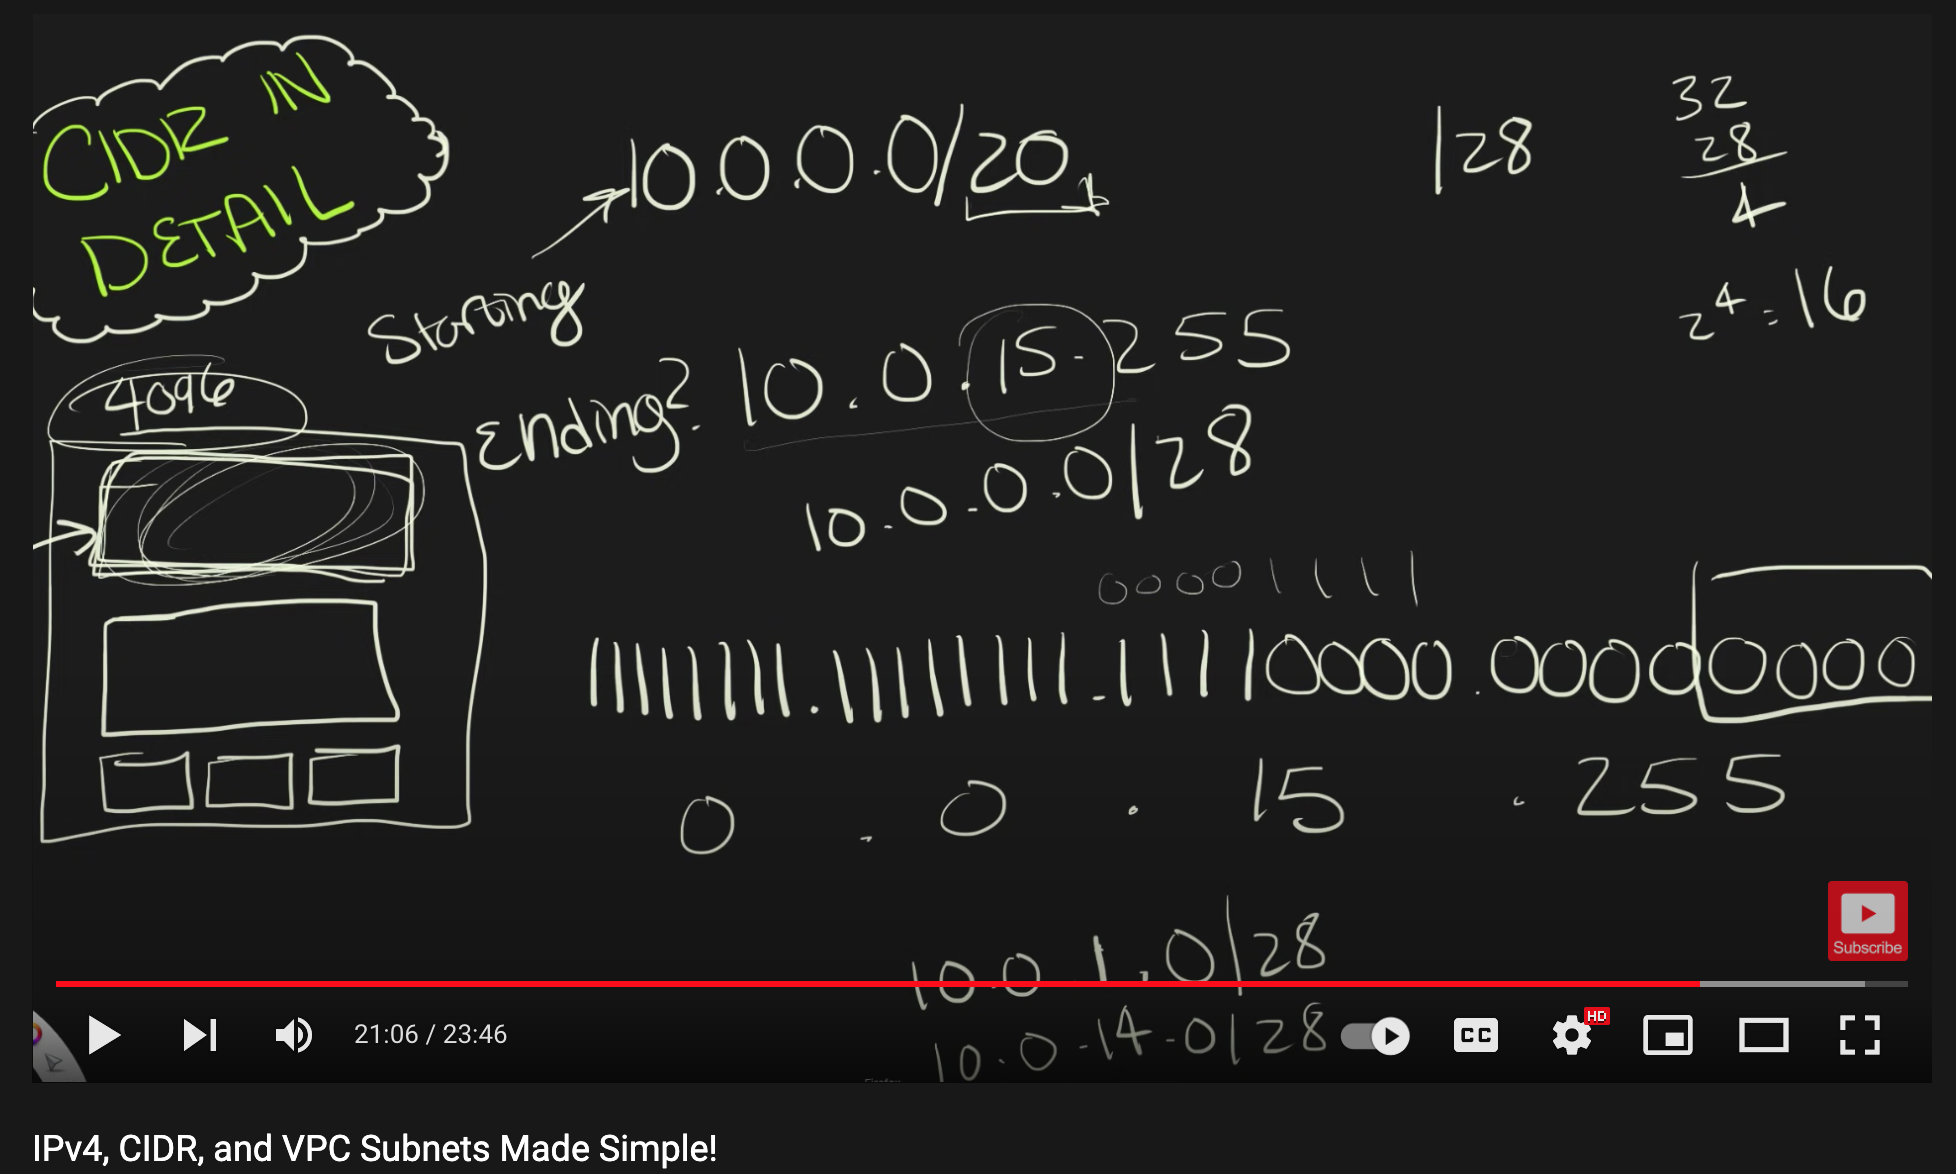 CIDR IN
DETAIL
10.0.0.0/20
/28
32
28
4
2^4 = 16
Starting
Ending? 10.0.15.255
4096
10.0.0.0/28
00001111
11111111.11111111.11110000.00000000
0.0.15.255
10.0.1.0/28
10.0.14.0/28
Subscribe
21:06 / 23:46
CC
HD
IPv4, CIDR, and VPC Subnets Made Simple!